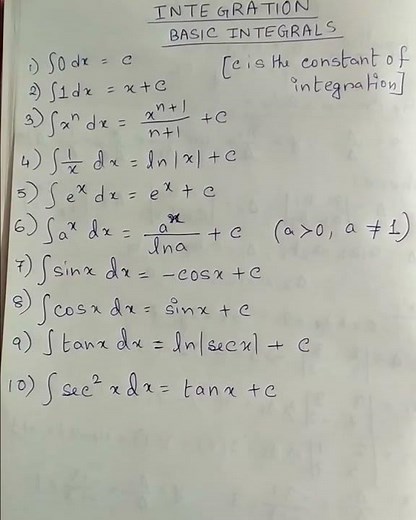 INTEGRATION
BASIC INTEGRALS
1) ∫0 dx = c [c is the constant of
2) ∫1 dx = x + c integration]
3) ∫xⁿ dx = xⁿ⁺¹/n+1 + c
4) ∫1/x dx = ln|x| + c
5) ∫eˣ dx = eˣ + c
6) ∫aˣ dx = aˣ/lna + c (a>0, a ≠ 1)
7) ∫sinx dx = -cosx + c
8) ∫cosx dx = sinx + c
9) ∫tanx dx = ln|secx| + c
10) ∫sec² x dx = tanx + c